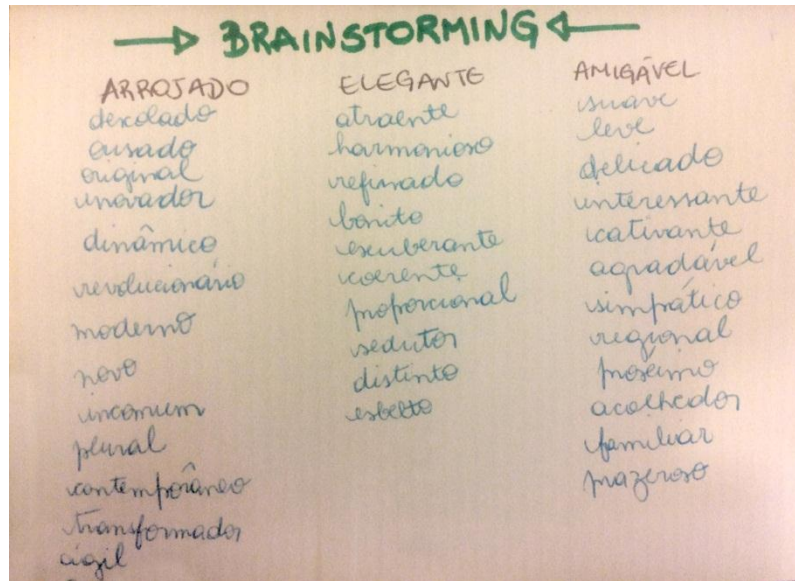 BRAINSTORMING
ARROJADO
descolado
ousado
original
inovador
dinâmico
revolucionário
moderno
novo
incomum
plural
contemporâneo
transformador
ágil
ELEGANTE
atraente
harmonioso
refinado
bonito
exuberante
coerente
proporcional
sedutor
distinto
esbelto
AMIGÁVEL
suave
leve
delicado
interessante
cativante
agradável
simpático
regional
próximo
acolhedor
familiar
prazeroso